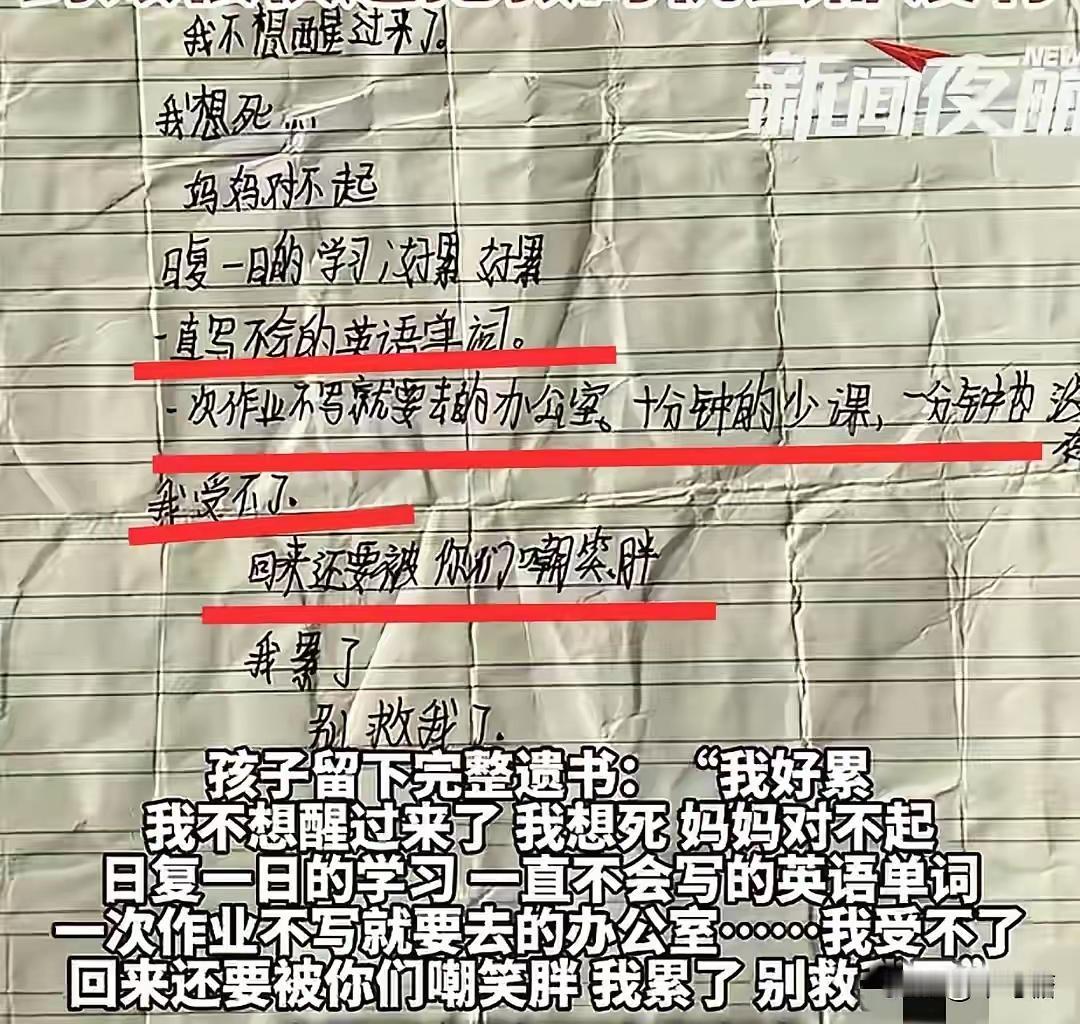 我不想醒过来了。
新闻夜航
NEW
我想死....
妈妈对不起
日复一日的学习,好累 好累
一直写不会的英语单词。
一次作业不写就要去的办公室。十分钟的少课,一分钟也没
我受不了.
回来还要被你们嘲笑胖
我累了
别救我了.
孩子留下完整遗书：“我好累
我不想醒过来了 我想死 妈妈对不起
日复一日的学习 一直不会写的英语单词
一次作业不写就要去的办公室……我受不了
回来还要被你们嘲笑胖 我累了 别救